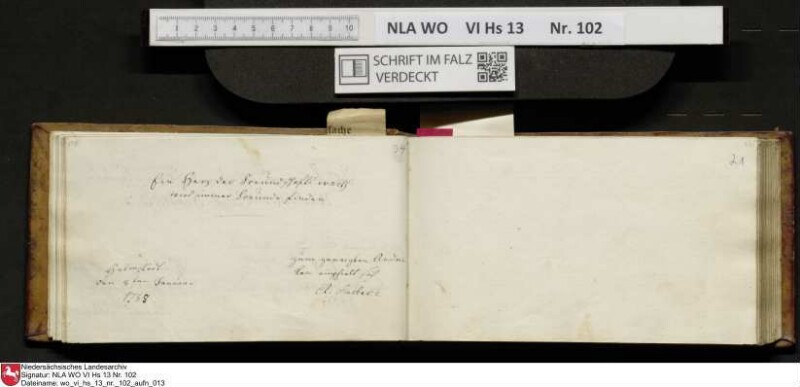 1 2 3 4 5 6 7 8 9 10
NLA WO VI Hs 13 Nr. 102
SCHRIFT IM FALZ
VERDECKT
Ein Herz der Freundschaft werth
wird immer Freunde finden
Helmstedt
den
zum geneigten Anden
ken empfiehlt sich
21
Niedersächsisches Landesarchiv
Signatur: NLA WO VI Hs 13 Nr. 102
Dateiname: wo_vi_hs_13_nr._102_aufn_013